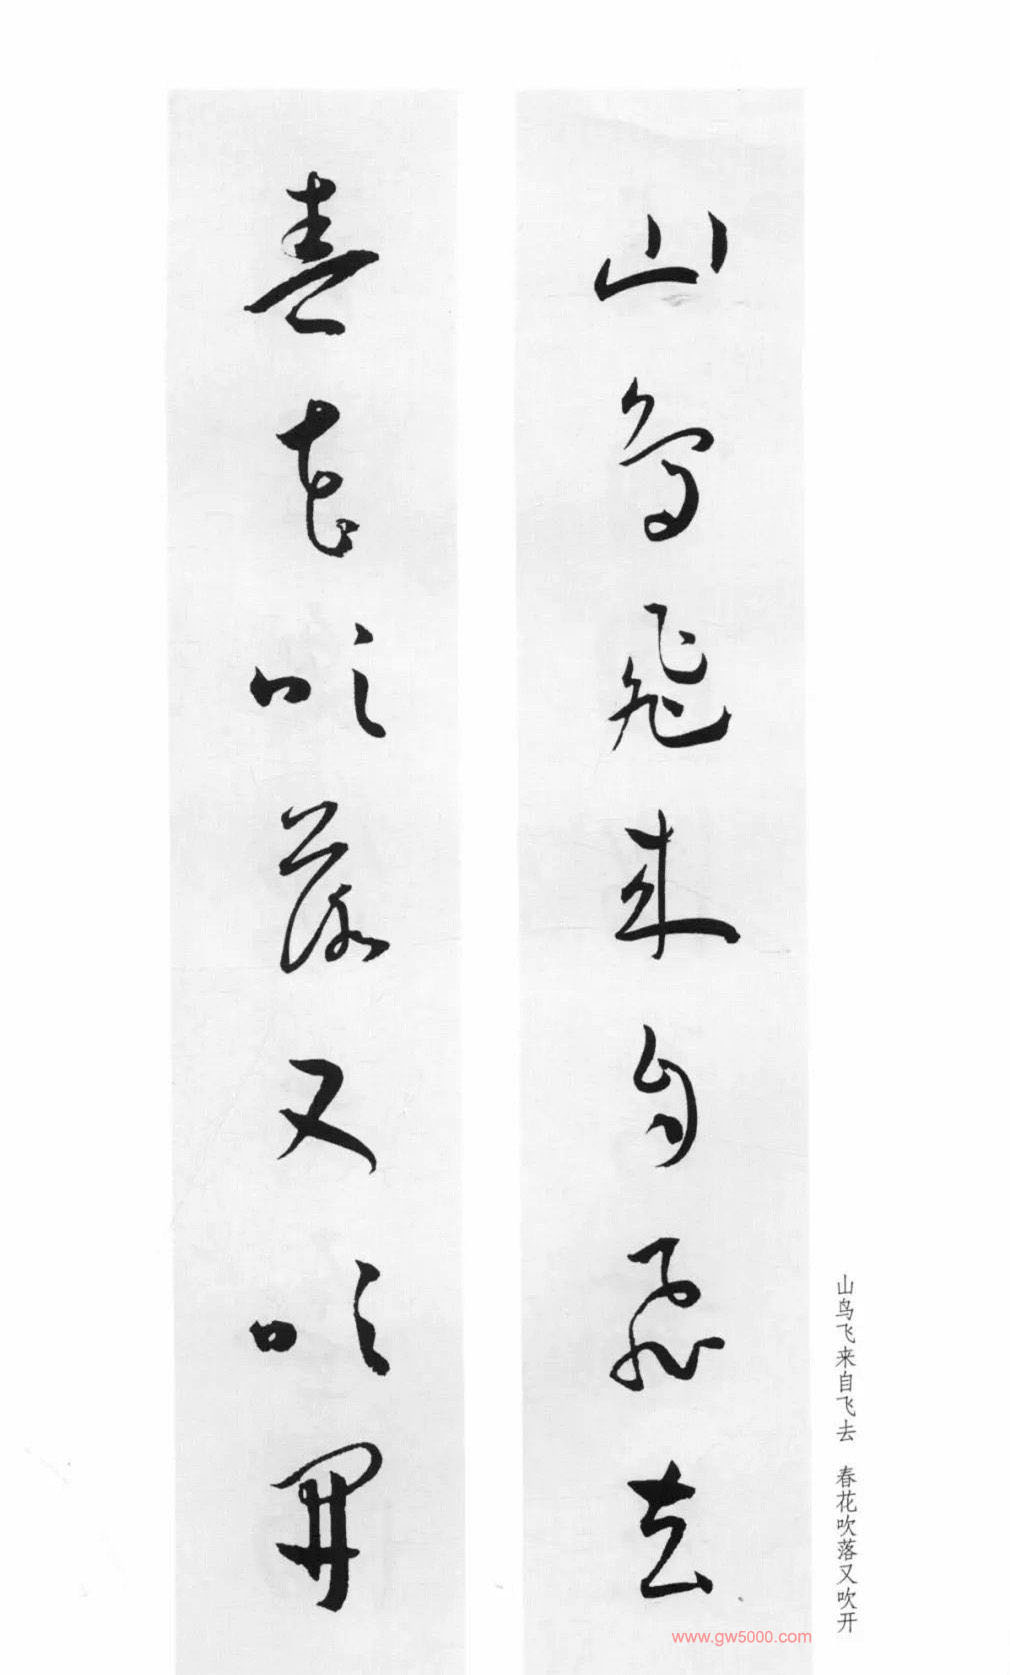 山鳥飛来自飛去
春花吹落又吹開
山鸟飞来自飞去 春花吹落又吹开
www.gw5000.com